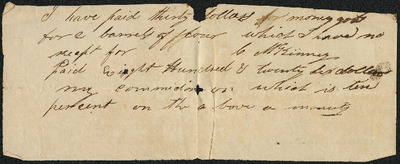 I have paid thirty dollars for money got
for 2 barrels of flour which I have no
receipt for C McKinney
Paid Eight Hundred & twenty six dollars
my commision on which is ten
percent on the above amounts